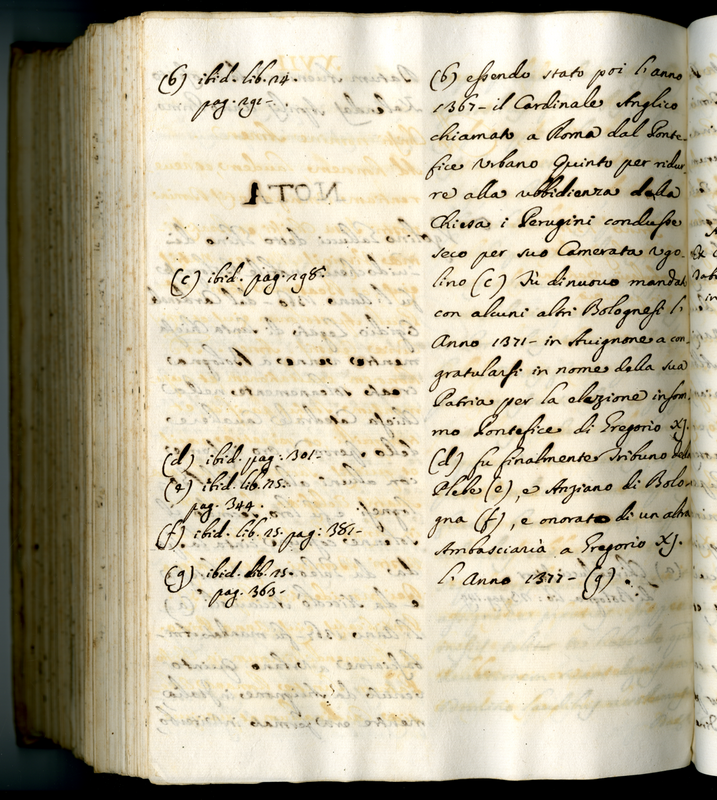 (b) ibid. lib. 24.
pag. 291-.
(c) ibid. pag. 298.
(d) ibid. pag. 301-
(e) ibid. lib. 25.
pag. 344.
(f) ibid. lib. 25. pag: 381-
(g) ibid. lib. 25.
pag. 363-
(b) essendo stato poi l'anno
1367- il Cardinale Anglico
chiamato a Roma dal Ponte-
fice Urbano Quinto per ridur-
re alla ubbidienza della
Chiesa i Perugini condusse
seco per suo Camerata Ugo-
lino (c) Fù di nuovo mandat
con alcuni altri Bolognesi l'
Anno 1371- in Avignone a con
gratularsi in nome della sua
Patria per la elezione in som
mo Pontefice di Gregorio XJ.
(d) fu finalmente Tribuno della
Plebe (e), e Anziano di Bolo
gna (f), e onorato di un altra
Ambasciaria a Gregorio XJ.
l'Anno 1377- (g).